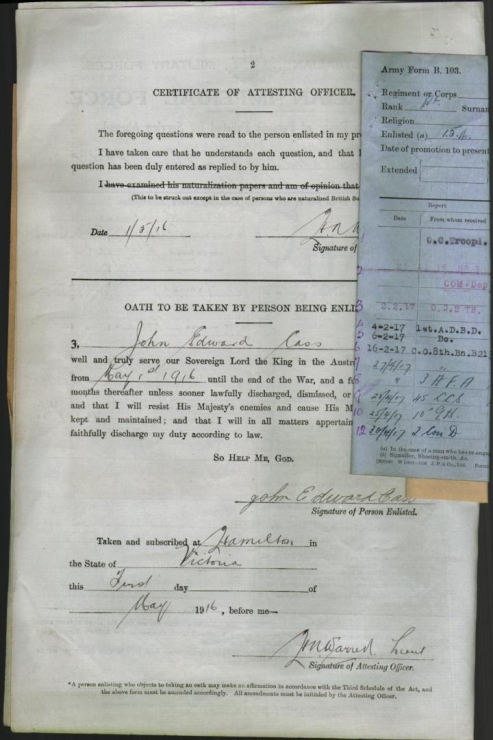 2
CERTIFICATE OF ATTESTING OFFICER.
The foregoing questions were read to the person enlisted in my pre
I have taken care that he understands each question, and that
question has been duly entered as replied to by him.
I have examined his naturalization papers and am of opinion that
(This to be struck out except in the case of persons who are naturalized British
Date 1/5/16
Signature of
OATH TO BE TAKEN BY PERSON BEING ENLI
3, John Edward Cass
well and truly serve our Sovereign Lord the King in the Austr
from May 1st 1916 until the end of the War, and a
months thereafter unless sooner lawfully discharged, dismissed, or
and that I will resist His Majesty's enemies and cause His M
kept and maintained; and that I will in all matters appertain
faithfully discharge my duty according to law.
SO HELP ME, GOD.
John Edward Cass
Signature of Person Enlisted.
Taken and subscribed at Hamilton in
the State of Victoria
this First day of
May 1916, before me—
Lieut
Signature of Attesting Officer.
*A person enlisting who objects to taking an oath may make an affirmation in accordance with the Third Schedule of the Act, and
the above form must be amended accordingly. All amendments must be initialed by the Attesting Officer.
Army Form B. 103.
Regiment or Corps
Rank Surnam
Religion
Enlisted (a)
Date of promotion to present
Extended
Report
Date From whom received
O.C. Troops.
COM-Dep
4-2-17 1st.A.D.B.D.
6-2-17 Do.
16-2-17 C.O.8th.Bn.B21
3 A F A
45 CCS